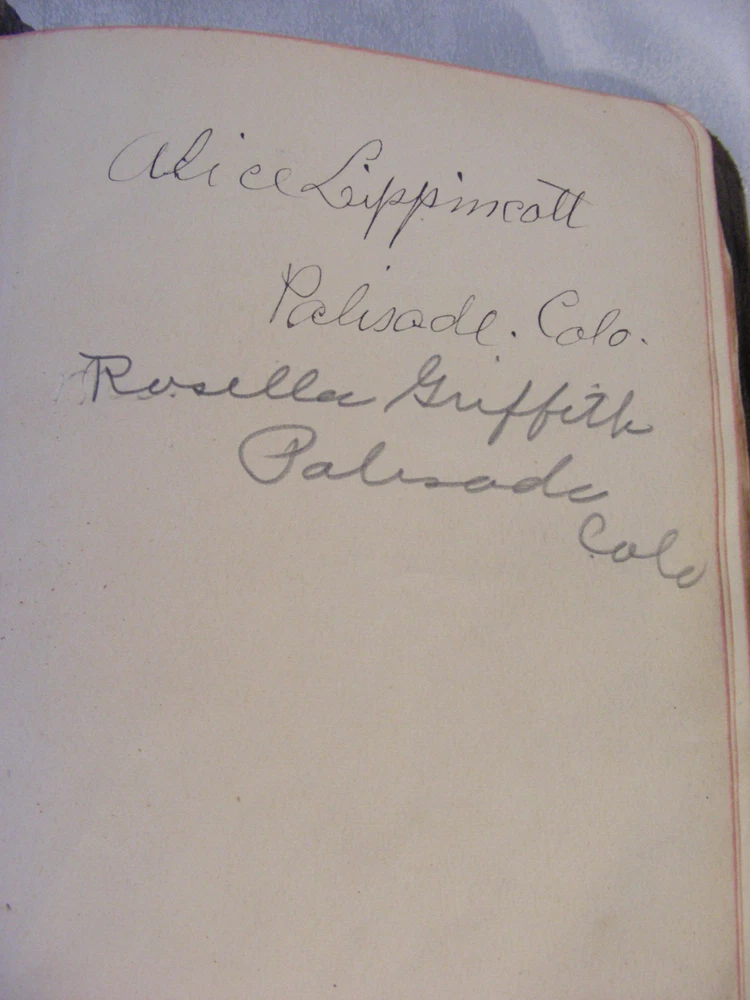 Alice Lippincott
Palisade. Colo.
Rosella Griffith
Palisade
Colo